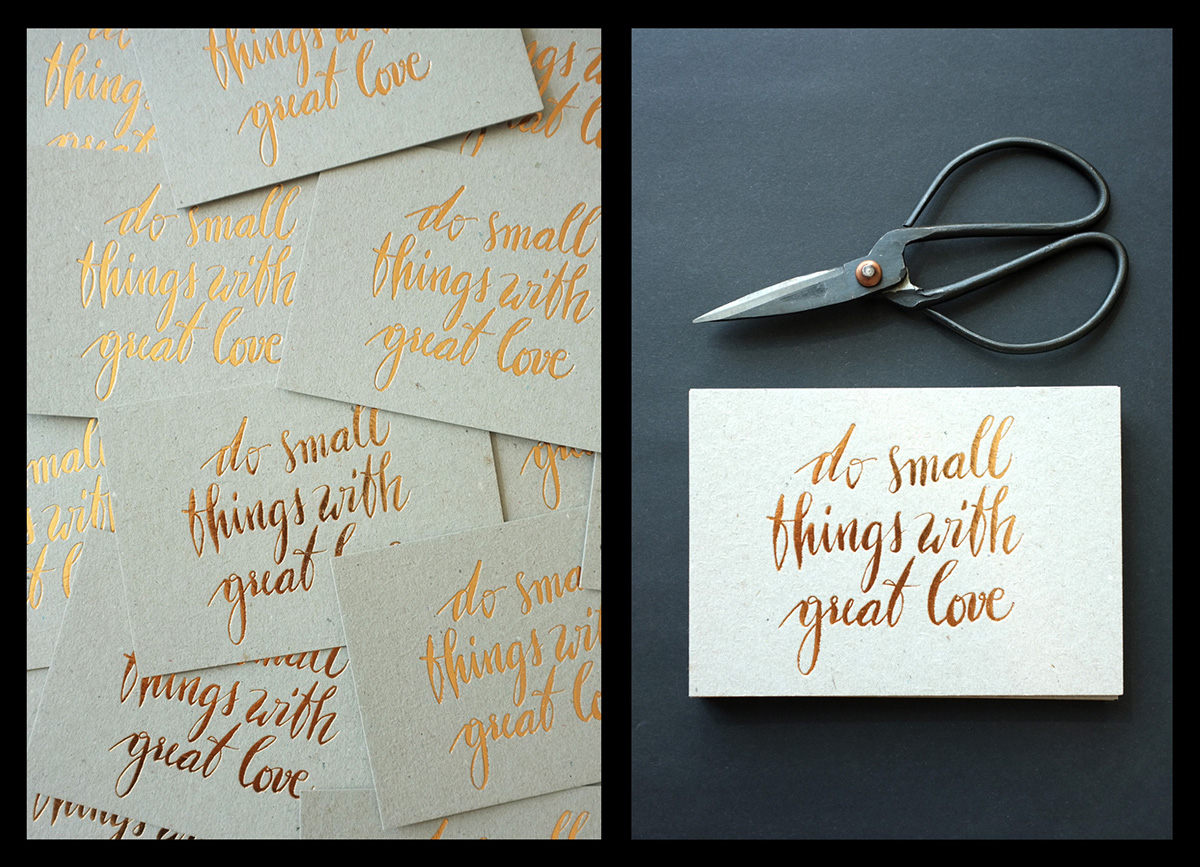 things
great love
do small
things with
great love
do small
things with
great love
do small
things with
great
do
things
great
things with
great love
do small
things with
great love